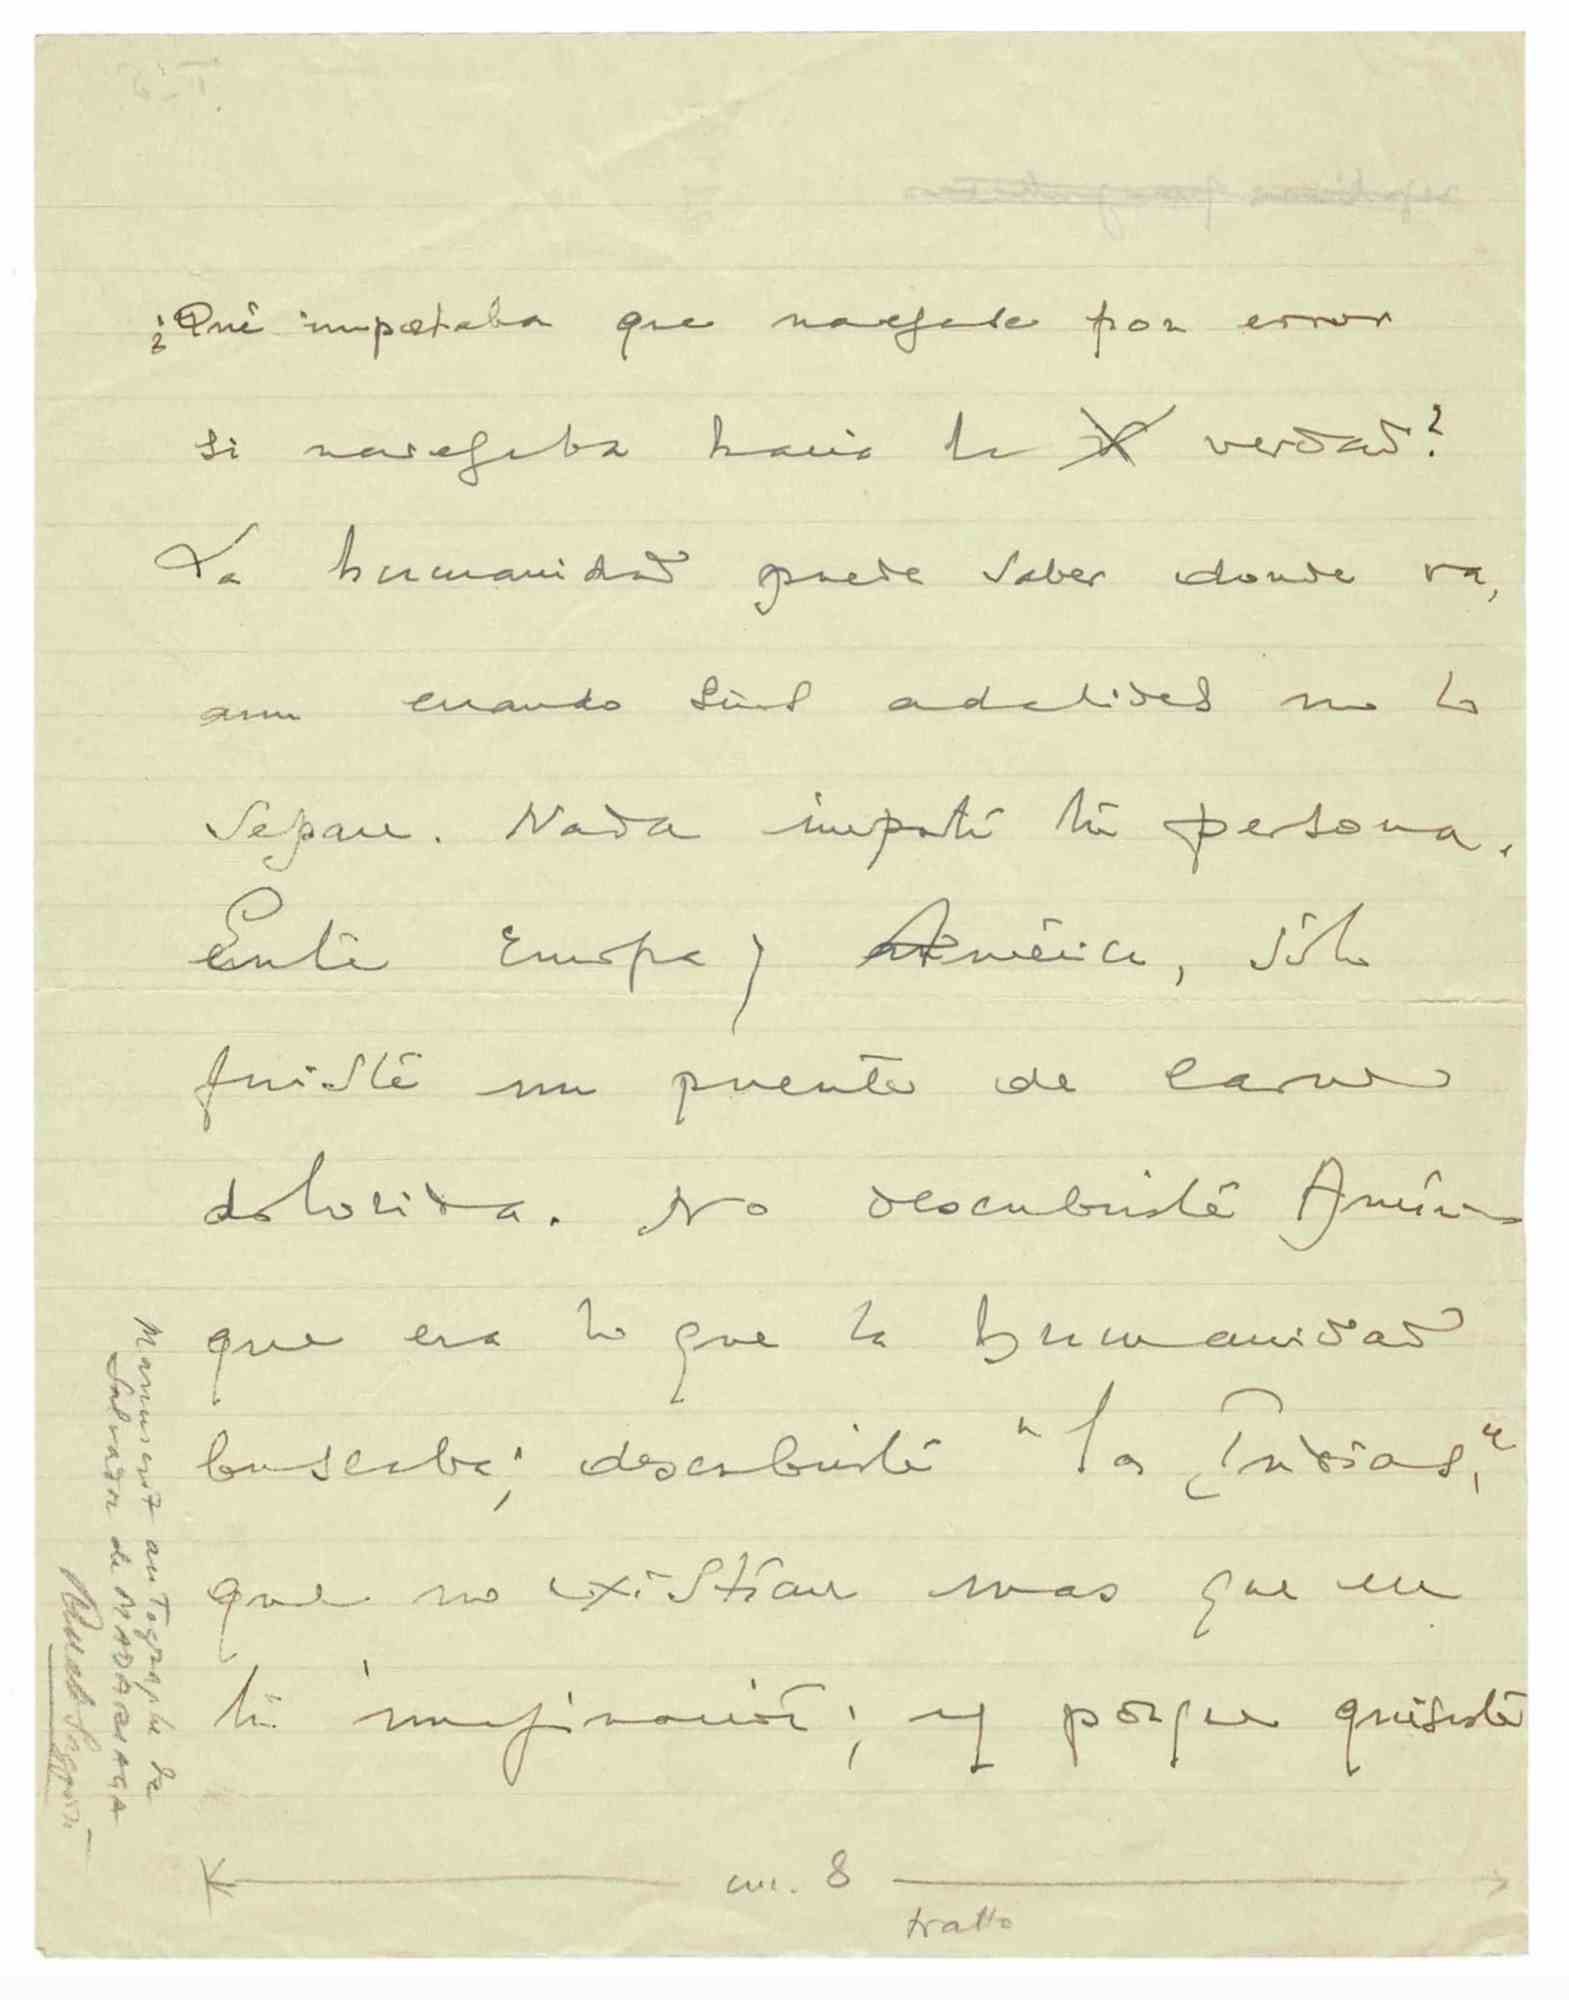 ¿Qué importaba que navegase por error
si navegaba hacia la verdad?
La humanidad puede saber donde va,
aun cuando sus adalides no lo
sepan. Nada importó tu persona.
Entre Europa y América, sólo
fuiste un puente de carne
dolorida. No descubriste América
que era lo que la humanidad
buscaba; descubriste "las Indias,"
que no existían mas que en
tu imaginación; y porque quisiste
cm. 8
tratto
Manuscrit autographe de
Salvador de MADARIAGA